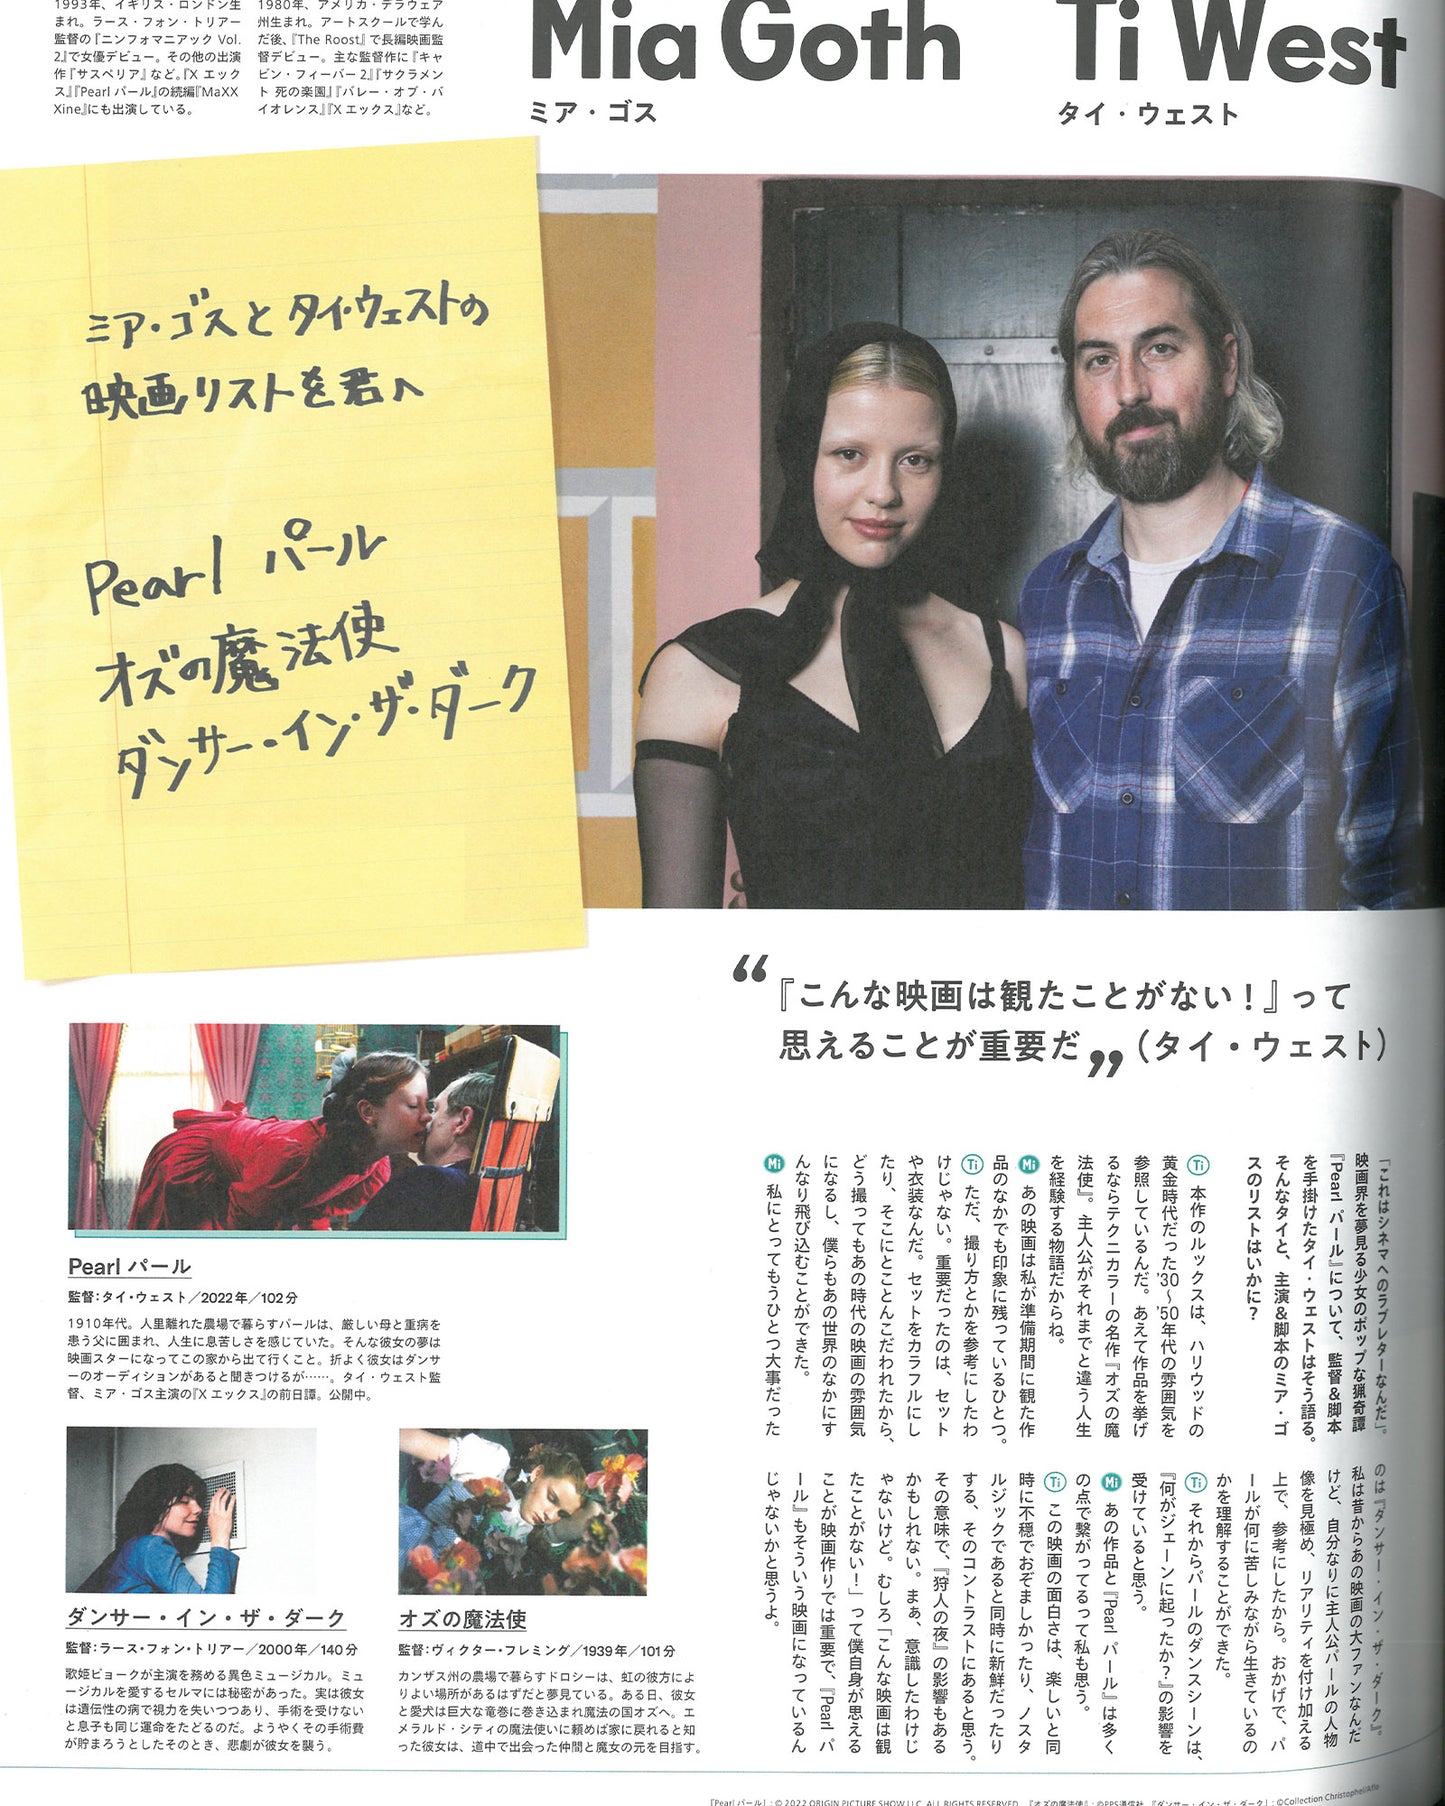 1993年、イギリス・ロンドン生
まれ。ラース・フォン・トリアー
監督の『ニンフォマニアック Vol.
2』で女優デビュー。その他の出演
作『サスペリア』など。『X エック
ス』『Pearl パール』の続編『MaXX
Xine』にも出演している。
1980年、アメリカ・デラウェア
州生まれ。アートスクールで学ん
だ後、『The Roost』で長編映画監
督デビュー。主な監督作に『キャ
ビン・フィーバー2』『サクラメン
ト 死の楽園』『バレー・オブ・バ
イオレンス』『X エックス』など。
Mia Goth
ミア・ゴス
Ti West
タイ・ウェスト
ミア・ゴスとタイ・ウェストの
映画リストを君へ
Pearl パール
オズの魔法使
ダンサー・イン・ザ・ダーク
“『こんな映画は観たことがない！』って
思えることが重要だ”（タイ・ウェスト）
「これはシネマへのラブレターなんだ」。
映画界を夢見る少女のポップな猟奇譚
『Pearl パール』について、監督&脚本
を手掛けたタイ・ウェストはそう語る。
そんなタイと、主演&脚本のミア・ゴ
スのリストはいかに？
Ti 本作のルックスは、ハリウッドの
黄金時代だった'30〜'50年代の雰囲気を
参照しているんだ。あえて作品を挙げ
るならテクニカラーの名作『オズの魔
法使』。主人公がそれまでと違う人生
を経験する物語だからね。
Mi あの映画は私が準備期間に観た作
品のなかでも印象に残っているひとつ。
Ti ただ、撮り方とかを参考にしたわ
けじゃない。重要だったのは、セット
や衣装なんだ。セットをカラフルにし
たり、そこにとことんこだわれたから、
どう撮ってもあの時代の映画の雰囲気
になるし、僕らもあの世界のなかにす
んなり飛び込むことができた。
Mi 私にとってもうひとつ大事だった
のは『ダンサー・イン・ザ・ダーク』。
私は昔からあの映画の大ファンなんだ
けど、自分なりに主人公パールの人物
像を見極め、リアリティを付け加える
上で、参考にしたから。おかげで、パ
ールが何に苦しみながら生きているの
かを理解することができた。
Ti それからパールのダンスシーンは、
『何がジェーンに起ったか？』の影響を
受けていると思う。
Mi あの作品と『Pearl パール』は多く
の点で繋がってるって私も思う。
Ti この映画の面白さは、楽しいと同
時に不穏でおぞましかったり、ノスタ
ルジックであると同時に新鮮だったり
する、そのコントラストにあると思う。
その意味で、『狩人の夜』の影響もある
かもしれない。まあ、意識したわけじ
ゃないけど。むしろ「こんな映画は観
たことがない！」って僕自身が思える
ことが映画作りでは重要で、『Pearl パ
ール』もそういう映画になっているん
じゃないかと思うよ。
Pearl パール
監督：タイ・ウェスト／2022年／102分
1910年代。人里離れた農場で暮らすパールは、厳しい母と重病を
患う父に囲まれ、人生に息苦しさを感じていた。そんな彼女の夢は
映画スターになってこの家から出て行くこと。折よく彼女はダンサ
ーのオーディションがあると聞きつけるが……。タイ・ウェスト監
督、ミア・ゴス主演の『X エックス』の前日譚。公開中。
ダンサー・イン・ザ・ダーク
監督：ラース・フォン・トリアー／2000年／140分
歌姫ビョークが主演を務める異色ミュージカル。ミュ
ージカルを愛するセルマには秘密があった。実は彼女
は遺伝性の病で視力を失いつつあり、手術を受けない
と息子も同じ運命をたどるのだ。ようやくその手術費
が貯まろうとしたそのとき、悲劇が彼女を襲う。
オズの魔法使
監督：ヴィクター・フレミング／1939年／101分
カンザス州の農場で暮らすドロシーは、虹の彼方によ
りよい場所があるはずだと夢見ている。ある日、彼女
と愛犬は巨大な竜巻に巻き込まれ魔法の国オズへ。エ
メラルド・シティの魔法使いに頼めば家に戻れると知
った彼女は、道中で出会った仲間と魔女の元を目指す。
『Pearl パール』：© 2022 ORIGIN PICTURE SHOW LLC. ALL RIGHTS RESERVED. 『オズの魔法使』：©PPS通信社 『ダンサー・イン・ザ・ダーク』：©Collection Christophel/Aflo